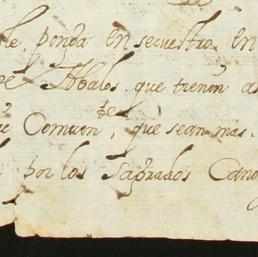 le, ponga en secuestro en
de Abalos, que tienen a
e Comun, que sean mas
por los Sagrados Cano